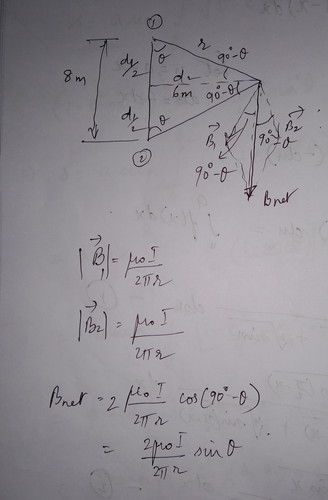 ①
r
d₁/2
θ
90°-θ
8m
d₂
6m
90°-θ
d₁/2
θ
②
B⃗₁
B⃗₂
90°-θ
90°-θ
Bnet
|B⃗₁| = μ₀I / 2πr
|B⃗₂| = μ₀I / 2πr
Bnet = 2 μ₀I / 2πr cos(90°-θ)
= 2μ₀I / 2πr sinθ